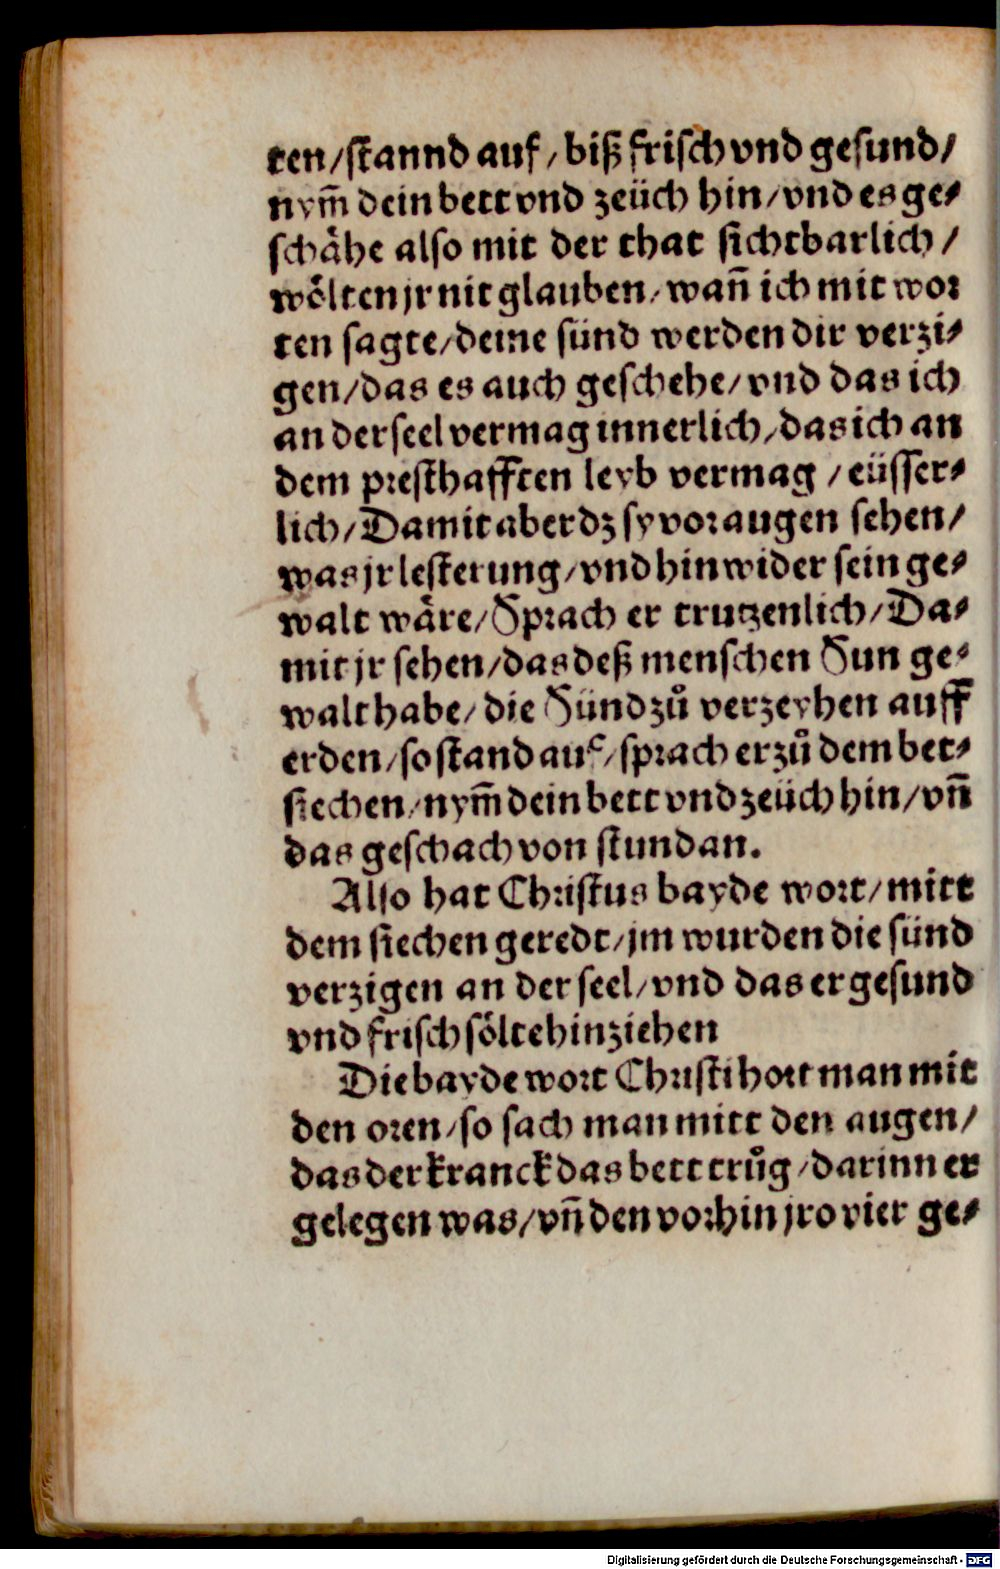 ten/stannd auf/biß frisch vnd gesund/
nym̄ dein bett vnd zeüch hin/vnd es ge⸗
schähe also mit der that sichtbarlich/
wölten jr nit glauben/wañ ich mit wor
ten sagte/deine sünd werden dir verzi⸗
gen/das es auch geschehe/vnd das ich
an der seel vermag innerlich/das ich an
dem presthafften leyb vermag/eüsser⸗
lich/Damit aber dz sy vor augen sehen/
was jr lesterung/vnd hinwider sein ge⸗
walt wäre/Sprach er trutzenlich/Da⸗
mit jr sehen/das deß menschen Sun ge⸗
walt habe/die Sünd zů verzeyhen auff
erden/so stand auf/sprach er zů dem bet⸗
siechen/nym̄ dein bett vnd zeüch hin/vñ
das geschach von stund an.
Also hat Christus bayde wort/mitt
dem siechen geredt/jm wurden die sünd
verzigen an der seel/vnd das er gesund
vnd frisch sölte hinziehen
Die bayde wort Christi hort man mit
den oren/so sach man mitt den augen/
das der kranck das bett trůg/darinn er
gelegen was/vñ den vorhin jro vier ge⸗
Digitalisierung gefördert durch die Deutsche Forschungsgemeinschaft - DFG